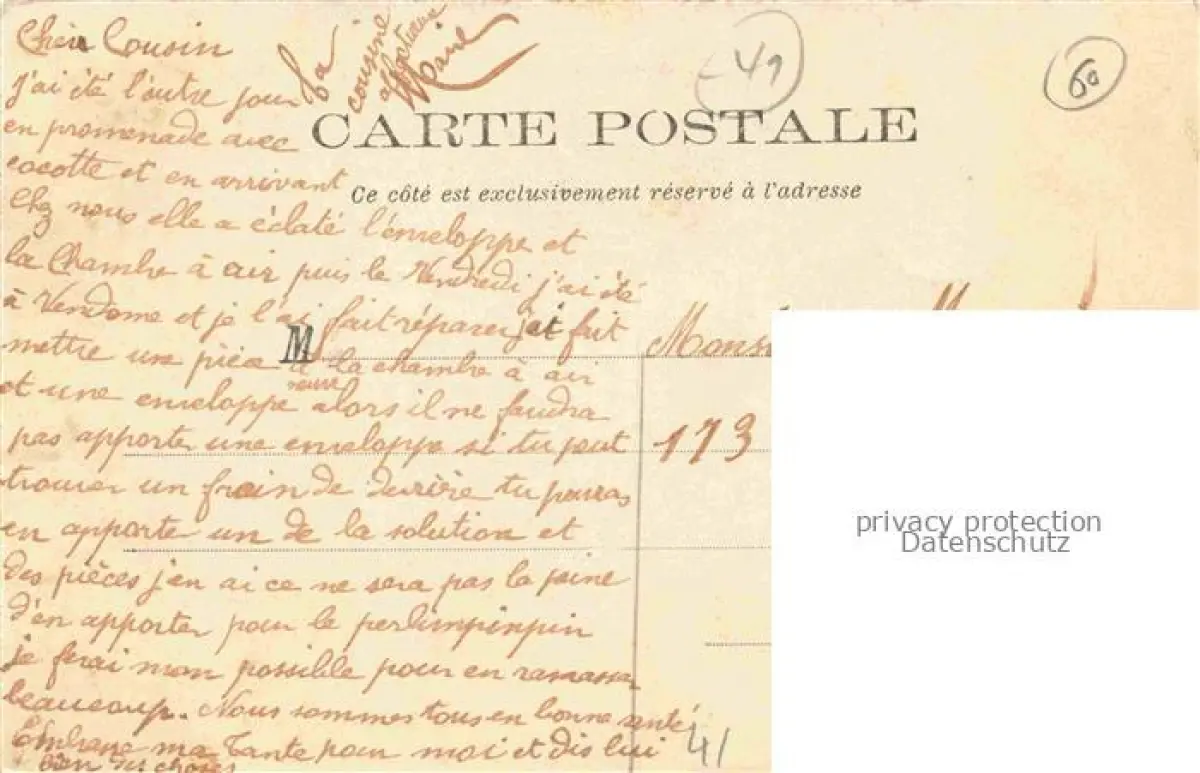 Cher Cousin
j'ai été l'autre jour
en promenade avec
cocotte et en arrivant
Chez nous elle a éclaté l'enveloppe et
la Chambre à air puis le Vendredi j'ai été
à Vendôme et je l'ai fait réparer j'ai fait
mettre une pièce à la chambre à air
et une enveloppe neuve alors il ne faudra
pas apporter une enveloppe si tu peut
trouver un frein de derière tu pourras
en apporter un de la solution et
des pièces j'en ai ce ne sera pas la peine
d'en apporter pour le perlimpinpin
je ferai mon possible pour en ramasser
beaucoup. Nous sommes tous en bonne santé
Embrasse ma Tante pour moi et dis lui
bien des choses
Ta
cousine
affectueuse
49
60
CARTE POSTALE
Ce côté est exclusivement réservé à l'adresse
M
173
41
privacy protection
Datenschutz